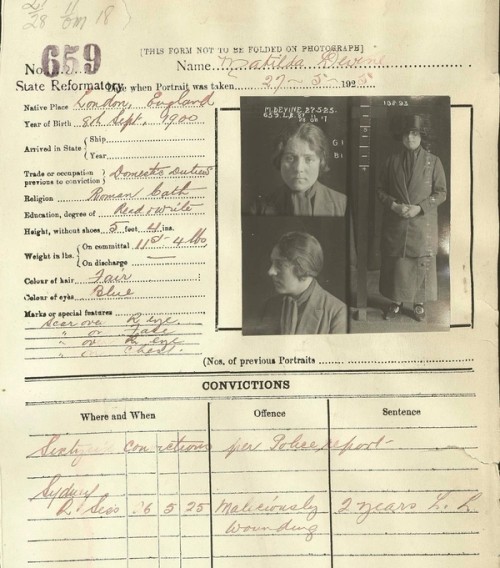 659
[THIS FORM NOT TO BE FOLDED ON PHOTOGRAPH]
No. Name Matilda Devine
State Reformatory Date when Portrait was taken 27-5-192
Native Place London, England
Year of Birth 8th Sept, 1900
Arrived in State { Ship
Year
Trade or occupation previous to conviction } Domestic Duties
Religion Roman Cath
Education, degree of Read & write
Height, without shoes 5 feet 4 ins.
Weight in lbs. { On committal
On discharge —
Colour of hair Fair
Colour of eyes Blue
Marks or special features
Scar over R. eye
" on Face
" over R. eye
" on Chest.
M. DEVINE 27.5.25.
659. L.B.
(Nos. of previous Portraits
CONVICTIONS
Where and When Offence Sentence
convictions per Police report-
Sydney
Q. Sess. 6 5 25 Maliciously 2 years L. L.
Wounding